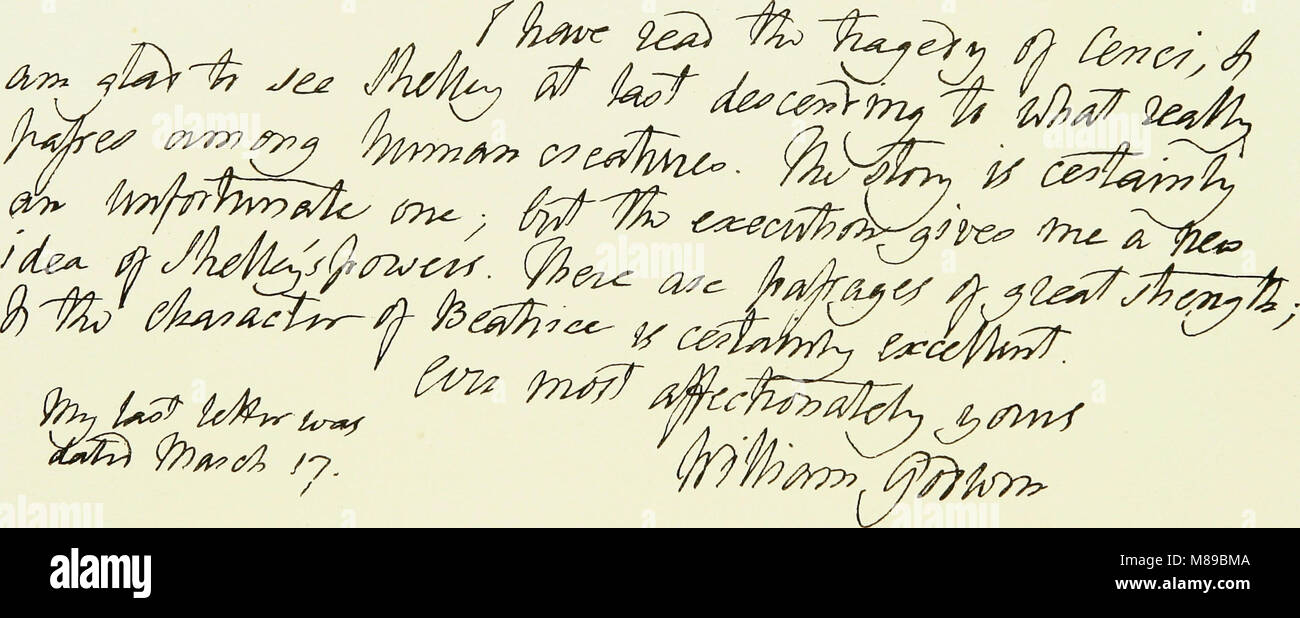 I have read the tragedy of Cenci, &
am glad to see Shelley at last descending to what really
passes among human creatures. The story is certainly
an unfortunate one; but the execution gives me a new
idea of Shelley's powers. There are passages of great strength;
& the character of Beatrice is certainly excellent.
Ever most affectionately yours
William Godwin
My last letter was
dated March 17.
alamy
Image ID: M89BMA
www.alamy.com